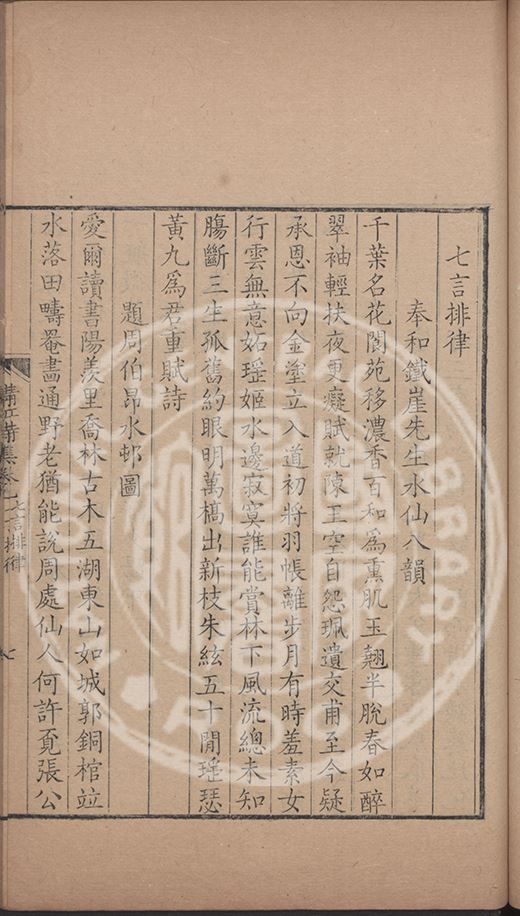 七言排律
奉和鐵崖先生水仙八韻
千葉名花閬苑移濃香百和爲熏肌玉翹半脫春如醉
翠袖輕扶夜更癡賦就陳王空自怨珮遺交甫至今疑
承恩不向金塗立入道初將羽帳離步月有時羞素女
行雲無意妬瑶姬水邊寂寞誰能賞林下風流總未知
腸斷三生孤舊約眼明萬槁出新枝朱絃五十閒瑶瑟
黃九爲君重賦詩
題周伯昂水邨圖
愛爾讀書陽羨里喬林古木五湖東山如城郭銅棺竝
水落田疇罨畫通野老猶能說周處仙人何許覓張公
清江詩集卷 七言排律